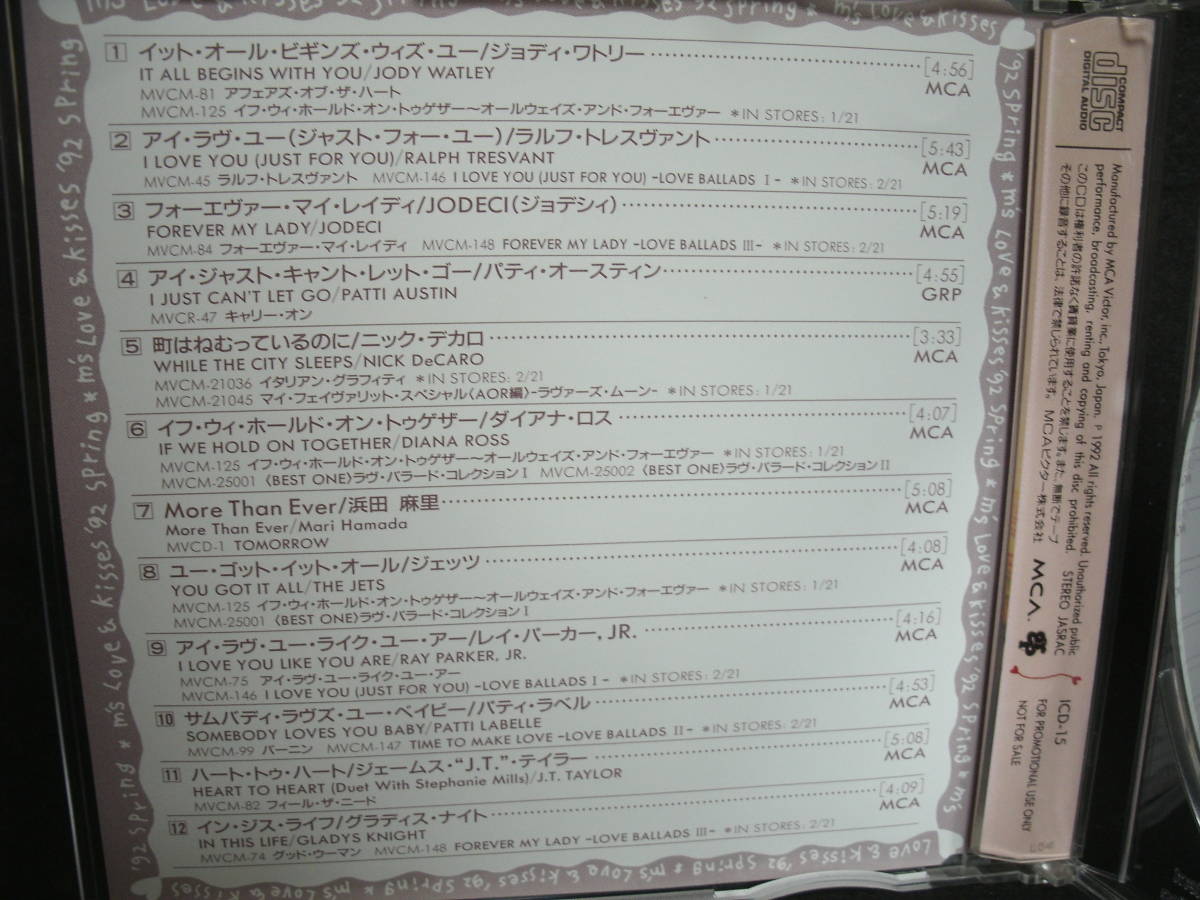 m's Love & Kisses '92 Spring * m's Love & Kisses
1 イット・オール・ビギンズ・ウィズ・ユー/ジョディ・ワトリー [4:56]
IT ALL BEGINS WITH YOU/JODY WATLEY MCA
MVCM-81 アフェアズ・オブ・ザ・ハート
MVCM-125 イフ・ウィ・ホールド・オン・トゥゲザー〜オールウェイズ・アンド・フォーエヴァー *IN STORES: 1/21
2 アイ・ラヴ・ユー(ジャスト・フォー・ユー)/ラルフ・トレスヴァント [5:43]
I LOVE YOU (JUST FOR YOU)/RALPH TRESVANT MCA
MVCM-45 ラルフ・トレスヴァント MVCM-146 I LOVE YOU (JUST FOR YOU) -LOVE BALLADS I- *IN STORES: 2/21
3 フォーエヴァー・マイ・レイディ/JODECI(ジョデシィ) [5:19]
FOREVER MY LADY/JODECI MCA
MVCM-84 フォーエヴァー・マイ・レイディ MVCM-148 FOREVER MY LADY -LOVE BALLADS III- *IN STORES: 2/21
4 アイ・ジャスト・キャント・レット・ゴー/パティ・オースティン [4:55]
I JUST CAN'T LET GO/PATTI AUSTIN GRP
MVCR-47 キャリー・オン
5 町はねむっているのに/ニック・デカロ [3:33]
WHILE THE CITY SLEEPS/NICK DeCARO MCA
MVCM-21036 イタリアン・グラフィティ *IN STORES: 2/21
MVCM-21045 マイ・フェイヴァリット・スペシャル〈AOR編〉-ラヴァーズ・ムーン- *IN STORES: 1/21
6 イフ・ウィ・ホールド・オン・トゥゲザー/ダイアナ・ロス [4:07]
IF WE HOLD ON TOGETHER/DIANA ROSS MCA
MVCM-125 イフ・ウィ・ホールド・オン・トゥゲザー〜オールウェイズ・アンド・フォーエヴァー *IN STORES: 1/21
MVCM-25001 〈BEST ONE〉ラヴ・バラード・コレクションI MVCM-25002 〈BEST ONE〉ラヴ・バラード・コレクションII
7 More Than Ever/浜田 麻里 [5:08]
More Than Ever/Mari Hamada MCA
MVCD-1 TOMORROW
8 ユー・ゴット・イット・オール/ジェッツ [4:08]
YOU GOT IT ALL/THE JETS MCA
MVCM-125 イフ・ウィ・ホールド・オン・トゥゲザー〜オールウェイズ・アンド・フォーエヴァー *IN STORES: 1/21
MVCM-25001 〈BEST ONE〉ラヴ・バラード・コレクションI
9 アイ・ラヴ・ユー・ライク・ユー・アー/レイ・パーカー, JR. [4:16]
I LOVE YOU LIKE YOU ARE/RAY PARKER, JR. MCA
MVCM-75 アイ・ラヴ・ユー・ライク・ユー・アー
MVCM-146 I LOVE YOU (JUST FOR YOU) -LOVE BALLADS I- *IN STORES: 2/21
10 サムバディ・ラヴズ・ユー・ベイビー/パティ・ラベル [4:53]
SOMEBODY LOVES YOU BABY/PATTI LABELLE MCA
MVCM-99 バーニン MVCM-147 TIME TO MAKE LOVE -LOVE BALLADS II- *IN STORES: 2/21
11 ハート・トゥ・ハート/ジェームス・“J.T.”・テイラー [5:08]
HEART TO HEART (Duet With Stephanie Mills)/J.T. TAYLOR MCA
MVCM-82 フィール・ザ・ニード
12 イン・ジス・ライフ/グラディス・ナイト [4:09]
IN THIS LIFE/GLADYS KNIGHT MCA
MVCM-74 グッド・ウーマン MVCM-148 FOREVER MY LADY -LOVE BALLADS III- *IN STORES: 2/21
'92 Spring * m's Love & Kisses '92 Spring * m's Love & Kisses '92 Spring
'92 Spring * m's Love & Kisses '92 Spring * m's Love & Kisses '92 Spring * m's
Love & Kisses '92 Spring * m's Love & Kisses '92 Spring * m's Love & Kisses
COMPACT
disc
DIGITAL AUDIO
Manufactured by MCA Victor, inc., Tokyo, Japan. ℗ 1992 All rights reserved. Unauthorized public
performance, broadcasting, renting and copying of this disc prohibited.
このCDは権利者の許諾なく賃貸業に使用することを禁じます。また、無断でテープ
その他に録音することは、法律で禁じられています。 MCAビクター株式会社
STEREO JASRAC
MCA.
ICD-15
FOR PROMOTIONAL USE ONLY
NOT FOR SALE